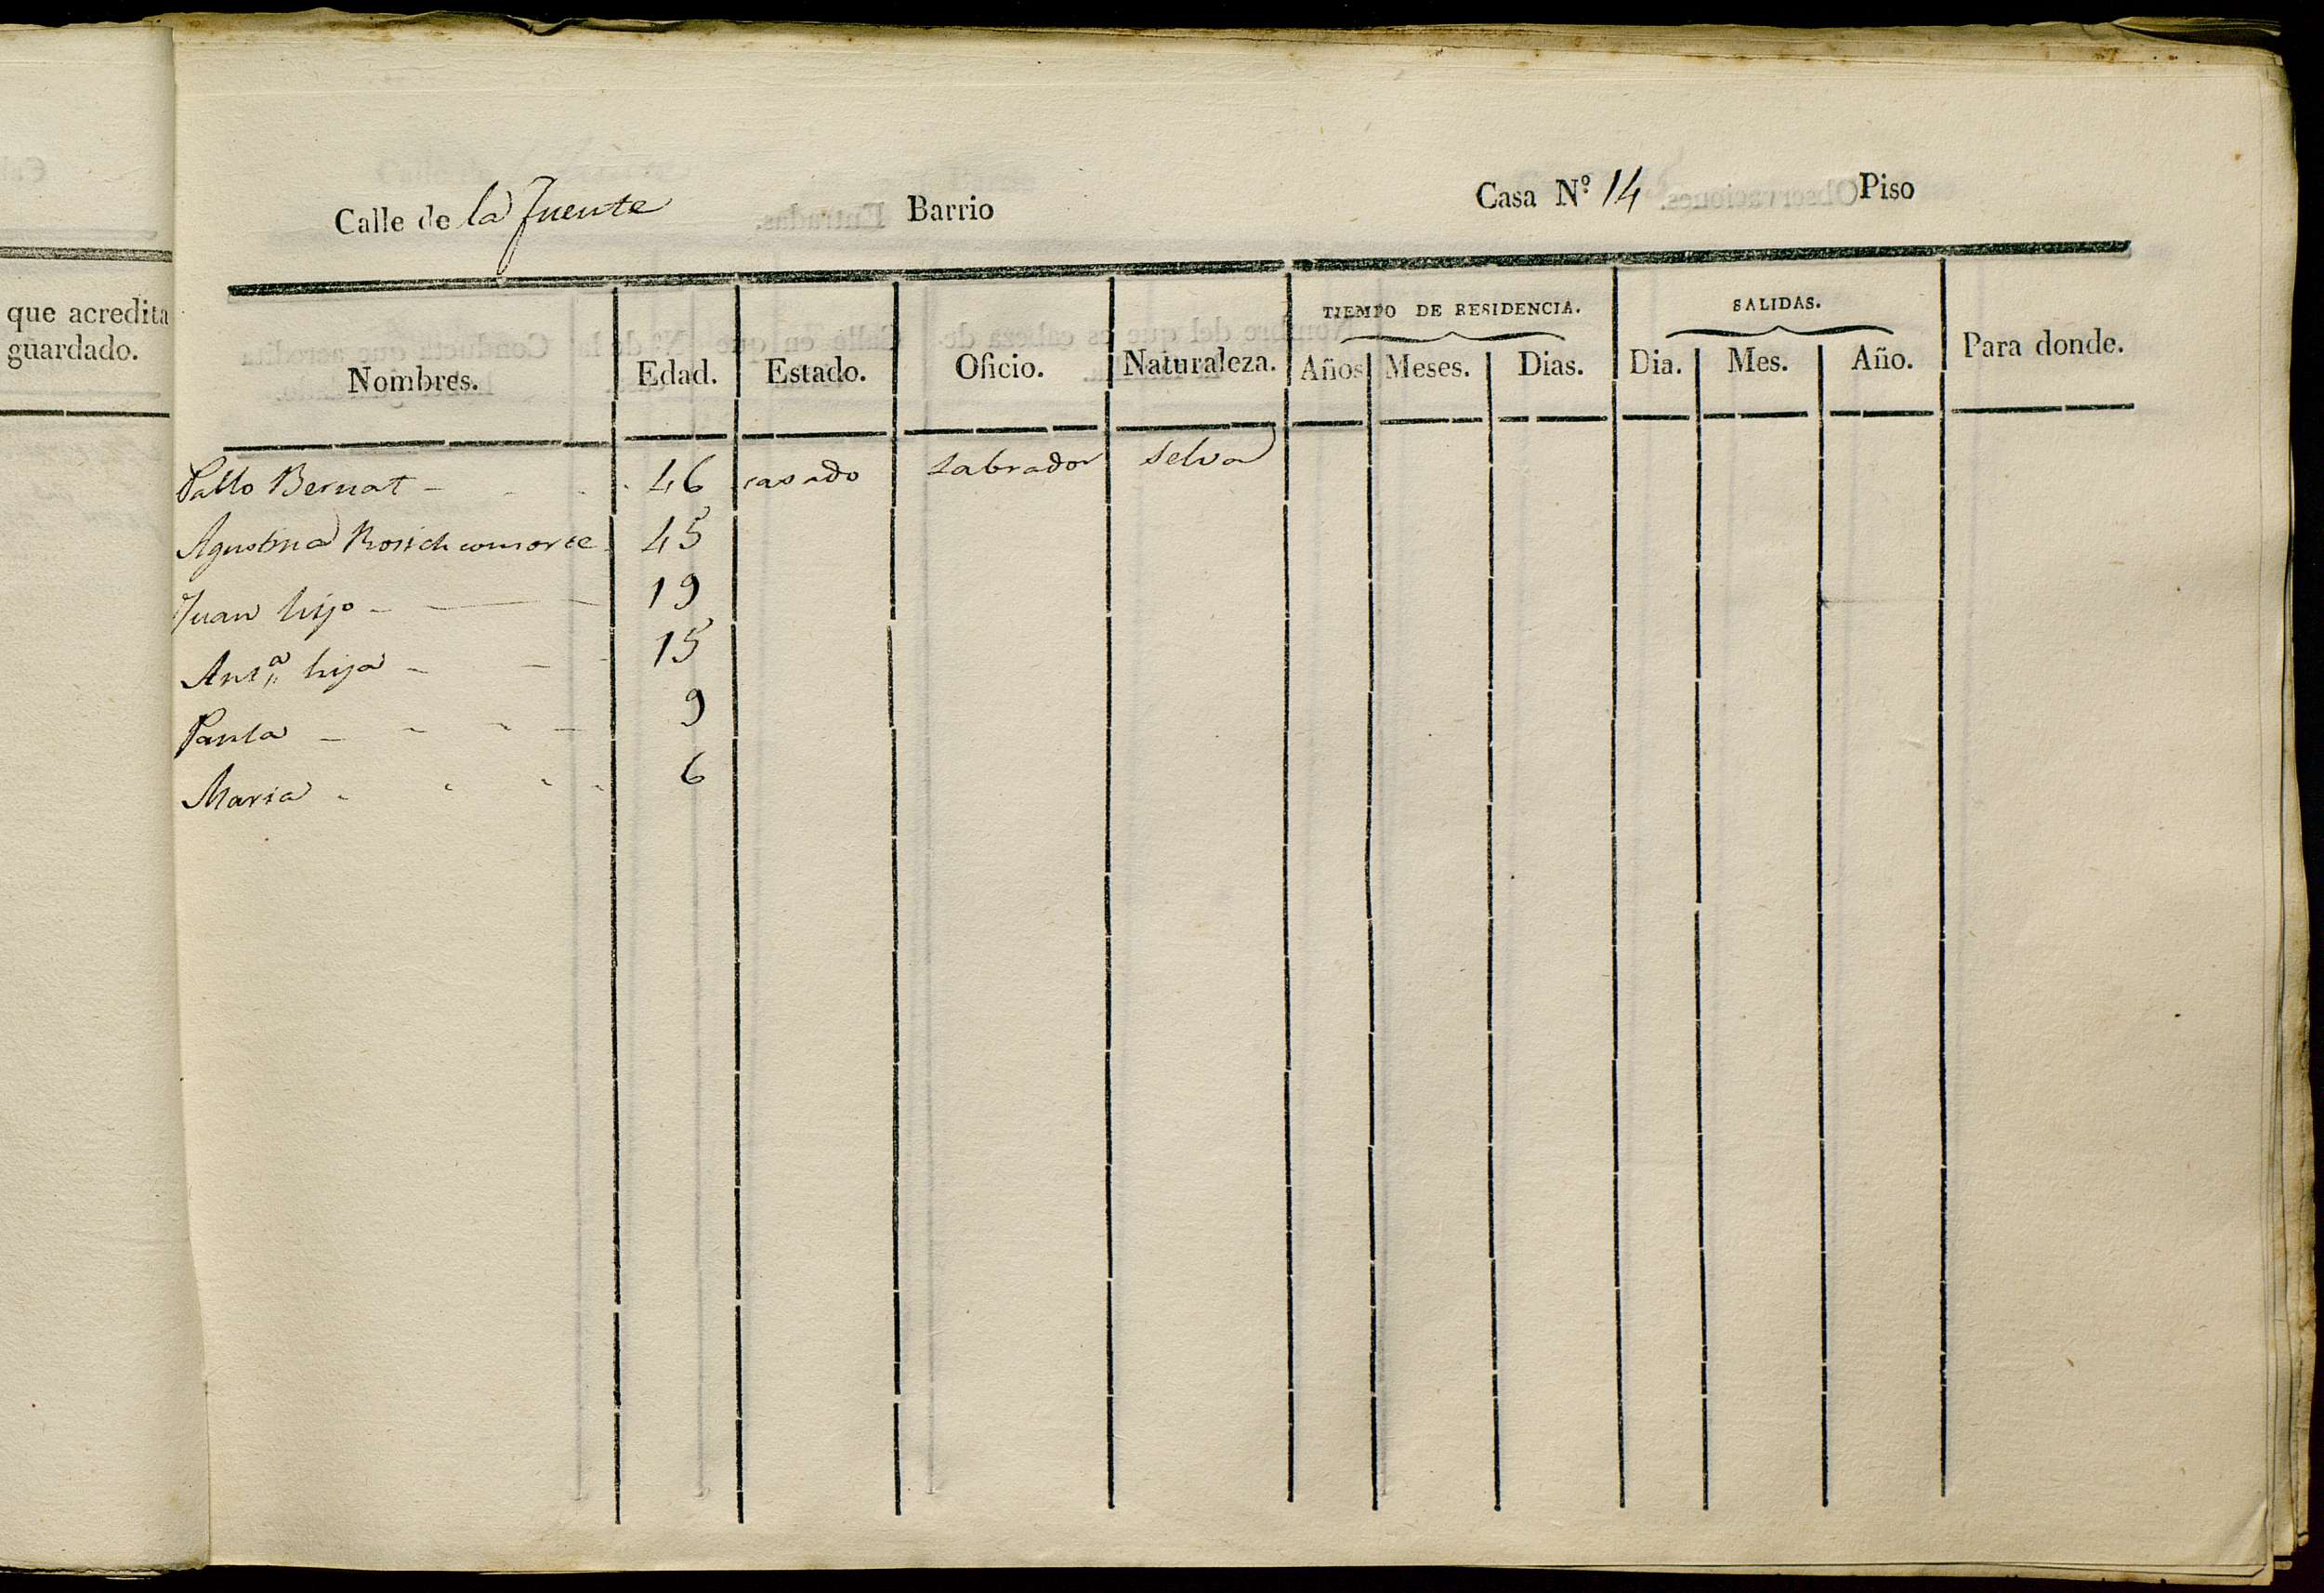 que acredita
guardado.
Calle de la Fuente Barrio Casa N.º 14 Piso
TIEMPO DE RESIDENCIA. SALIDAS.
Nombres. Edad. Estado. Oficio. Naturaleza. Años Meses. Dias. Dia. Mes. Año. Para donde.
Pablo Bernat - 46 casado Labrador Selva
Agustina Rosich consorte 45
Juan hijo - 19
Ant.ª hija - 15
Paula - 9
Maria - 6